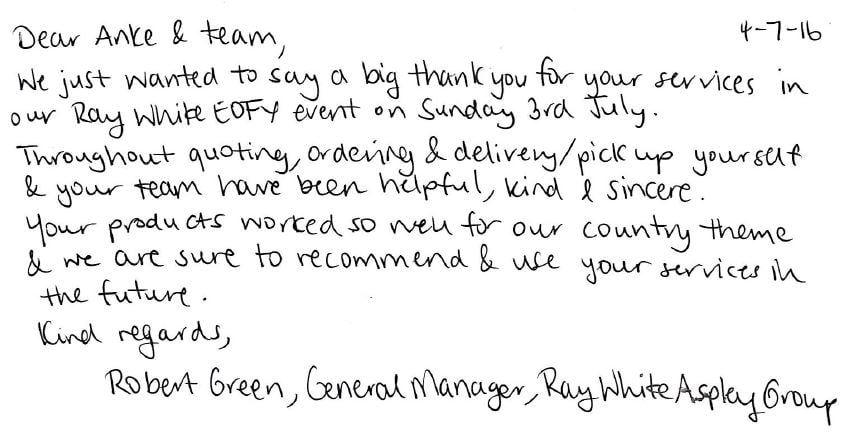 Dear Anke & team,
4-7-16
We just wanted to say a big thank you for your services in
our Ray White EOFY event on Sunday 3rd July.
Throughout quoting, ordering & delivery/pick up yourself
& your team have been helpful, kind & sincere.
Your products worked so well for our country theme
& we are sure to recommend & use your services in
the future.
Kind regards,
Robert Green, General Manager, Ray White Aspley Group